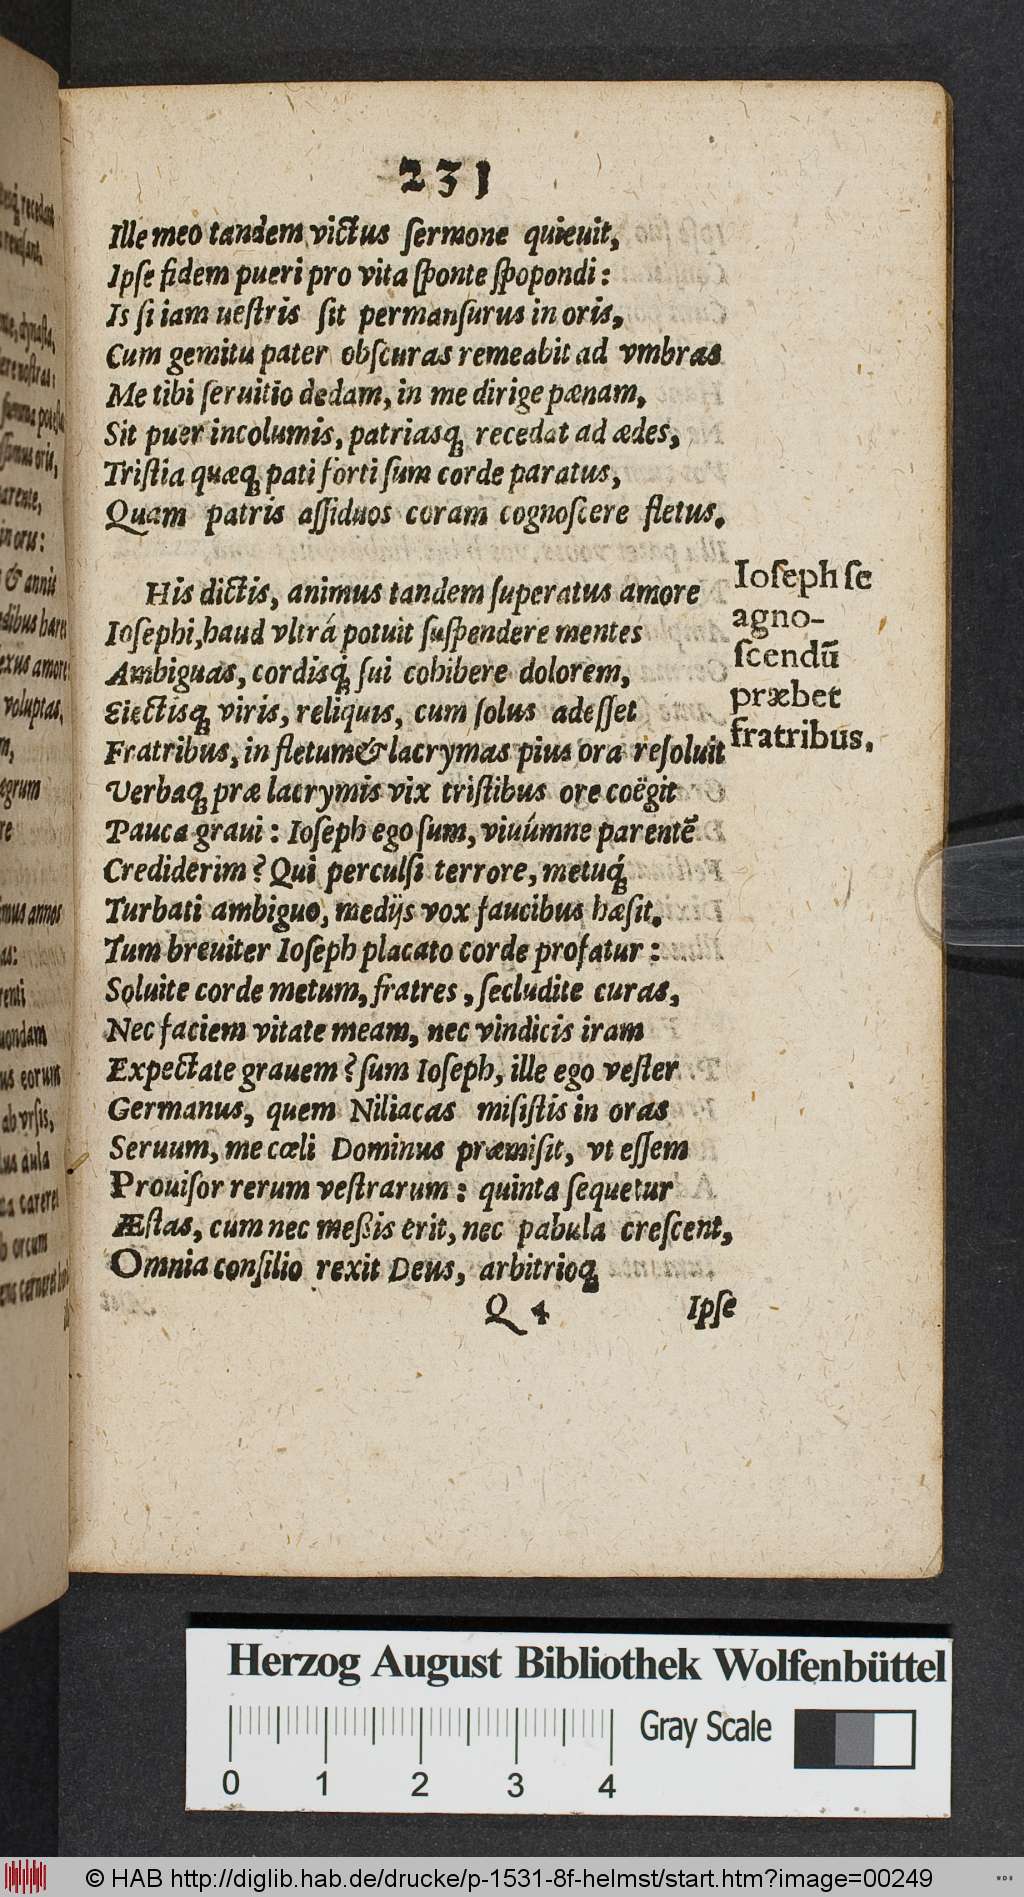 231
Ille meo tandem victus ſermone quieuit,
Ipſe fidem pueri pro vita ſponte ſpopondi:
Is ſi iam ueſtris ſit permanſurus in oris,
Cum gemitu pater obſcuras remeabit ad vmbras
Me tibi ſeruitio dedam, in me dirige pænam,
Sit puer incolumis, patriasq́; recedat ad ædes,
Triſtia quæq; pati forti ſum corde paratus,
Quam patris aſſiduos coram cognoſcere fletus.
His dictis, animus tandem ſuperatus amore
Ioſephi, haud vltrá potuit ſuſpendere mentes
Ambiguas, cordisq́; ſui cohibere dolorem,
Eiectisq; viris, reliquis, cum ſolus adeſſet
Fratribus, in fletum & lacrymas pius ora reſoluit
Verbaq; præ lacrymis vix triſtibus ore coëgit
Pauca graui: Ioſeph ego ſum, viuúmne parentẽ
Crediderim? Qui perculſi terrore, metuq́;
Turbati ambiguo, medijs vox faucibus hæſit.
Tum breuiter Ioſeph placato corde profatur:
Soluite corde metum, fratres, ſecludite curas,
Nec faciem vitate meam, nec vindicis iram
Expectate grauem? ſum Ioſeph, ille ego veſter
Germanus, quem Niliacas miſiſtis in oras
Seruum, me cœli Dominus præmiſit, vt eſſem
Prouiſor rerum veſtrarum: quinta ſequetur
Æſtas, cum nec meßis erit, nec pabula creſcent,
Omnia conſilio rexit Deus, arbitrioq;
Q 4 Ipſe
Ioſeph ſe
agno-
ſcendũ
præbet
fratribus.
Herzog August Bibliothek Wolfenbüttel
Gray Scale
0 1 2 3 4
© HAB http://diglib.hab.de/drucke/p-1531-8f-helmst/start.htm?image=00249